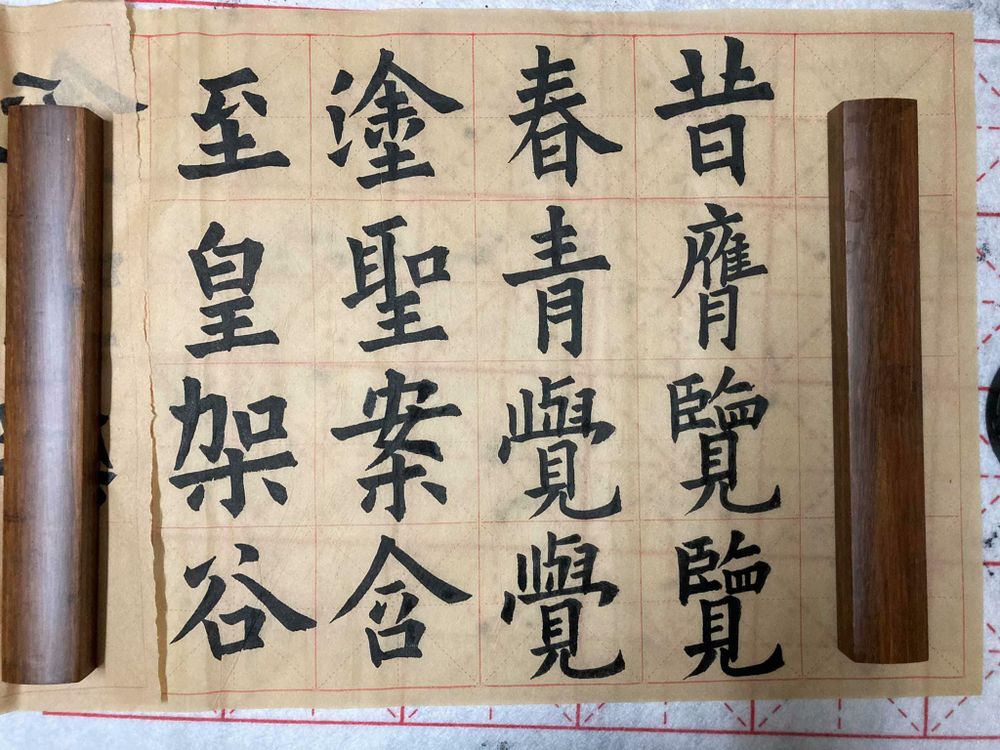 昔膺覽覽
春青覺覺
塗聖案含
至皇架谷